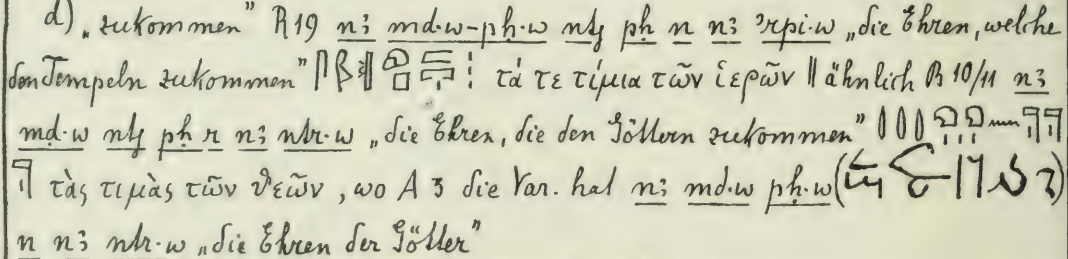 d) „zukommen" R 19 nꜣ md·w-pḥ·w ntj pḥ n nꜣ ꜣrpi·w „die Ehren, welche
den Tempeln zukommen" τά τε τίμια τῶν ἱερῶν ‖ ähnlich R 10/11 nꜣ
md·w ntj pḥ r nꜣ nṯr·w „die Ehren, die den Göttern zukommen"
τὰς τιμὰς τῶν θεῶν, wo A 3 die Var. hat nꜣ md·w pḥ·w ( )
n nꜣ nṯr·w „die Ehren der Götter"